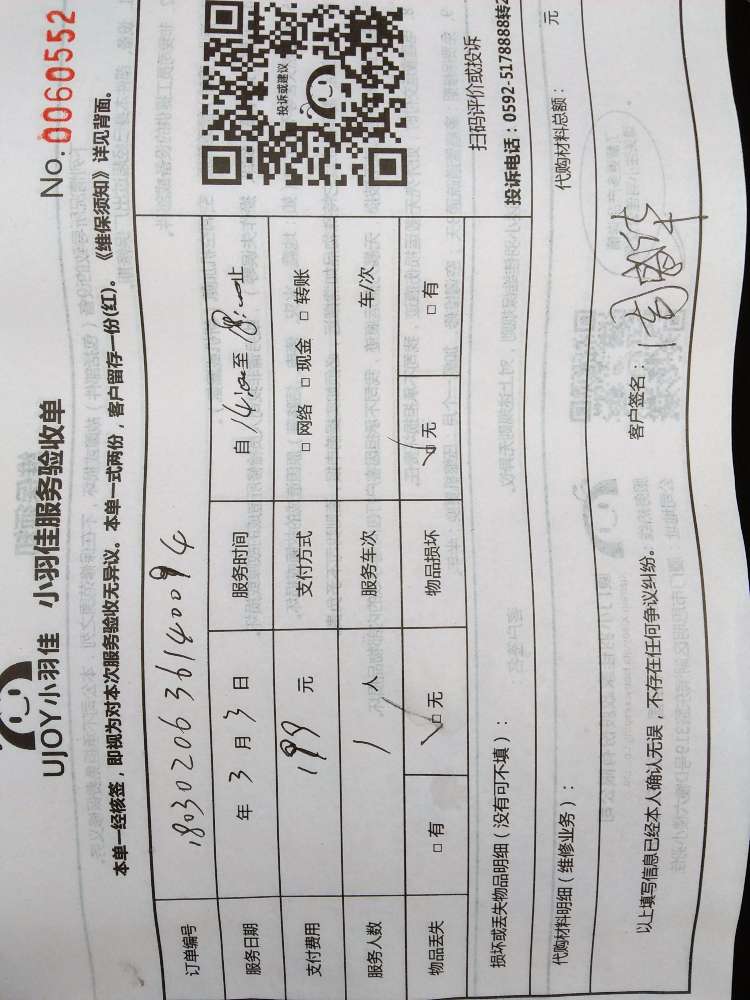 No. 0060552
UJOY小羽佳 小羽佳服务验收单
本单一经核签，即视为对本次服务验收无异议。本单一式两份，客户留存一份(红)。《维保须知》详见背面。
订单编号 1803020636140094
服务日期 年 3 月 3 日 服务时间 自 14:00 至 18:一止
支付费用 199 元 支付方式 □ 网络 □ 现金 □ 转账
服务人数 1 人 服务车次 车/次
物品丢失 □ 有 □ 无 物品损坏 □ 无 □ 有
投诉或建议
扫码评价或投诉
投诉电话：0592-5178888转2
损坏或丢失物品明细（没有可不填）：
代购材料明细（维修业务）： 代购材料总额： 元
以上填写信息已经本人确认无误，不存在任何争议纠纷。 客户签名：